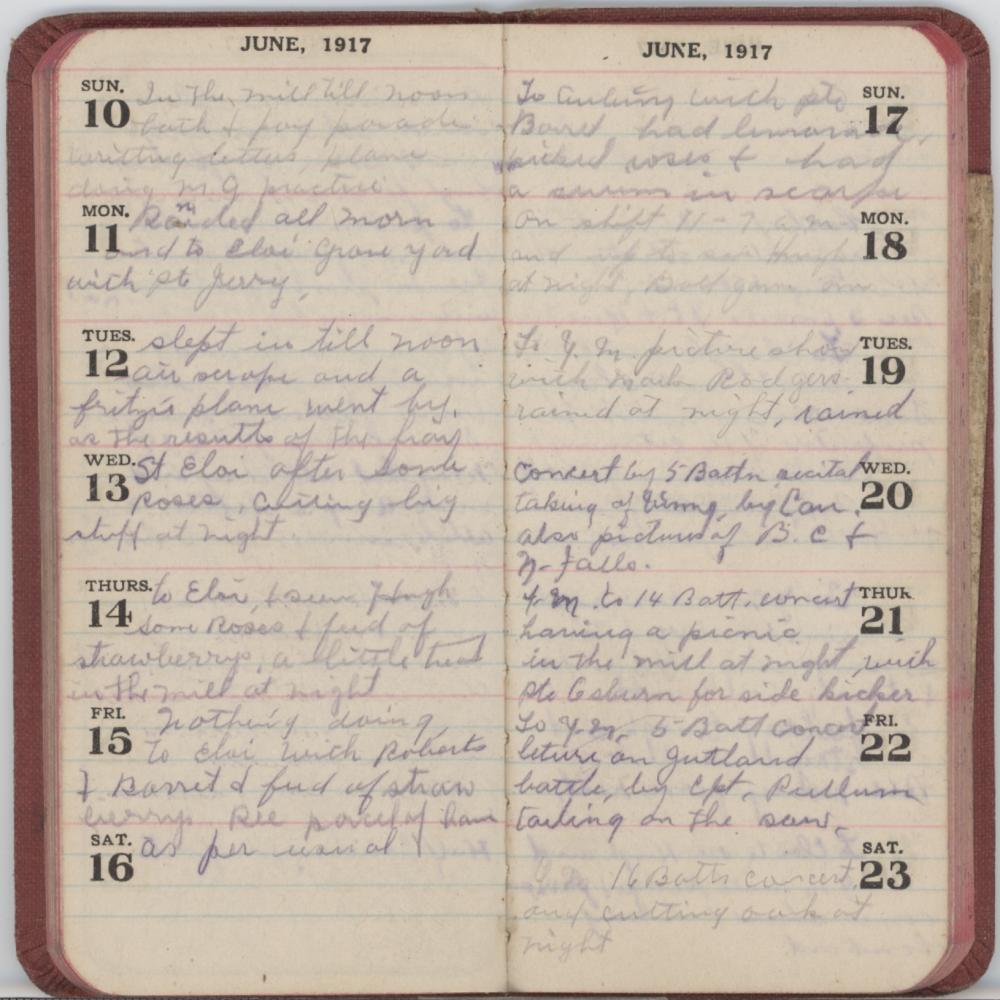 JUNE, 1917
SUN. 10 In the mill till noon
bath & pay parade
writting letters, plane
doing M G practice
MON. 11 Rained all morn
and to Eloi Grave yard
with Pte Jerry.
TUES. 12 slept in till noon
air scrape and a
fritzis plane went by,
as the results of the fray
WED. 13 St Eloi after some
roses, cutting big
stuff at night
THURS. 14 to Eloi, & seen Hugh
some Roses & feed of
strawberrys, a little
in the mill at night
FRI. 15 Nothing doing
to Eloi with Roberts
& Barret & feed of straw
berrys. Rec parcel from
SAT. 16 as per usual
JUNE, 1917
SUN. 17 To with pte
Barret, had
picked roses & had
a swum in scarpe
MON. 18 on shift 11-7 a.m
and up to see Hugh
at night, Ball game on
TUES. 19 To Y.M. picture show
with Rodgers
rained at night, rained
WED. 20 Concert by 5 Battn recital
taking of Vimy, by Can.
also pictures of B. C &
N-Falls.
THUR. 21 Y.M. to 14 Batt. concert
having a picnic
in the mill at night, with
pte Osburn for side kicker
FRI. 22 To Y.M. 5 Batt concert
leture on Jutland
battle, by Cpt. Pullum
tailing on the saw.
SAT. 23 16 Batts concert,
and cutting oak at
night